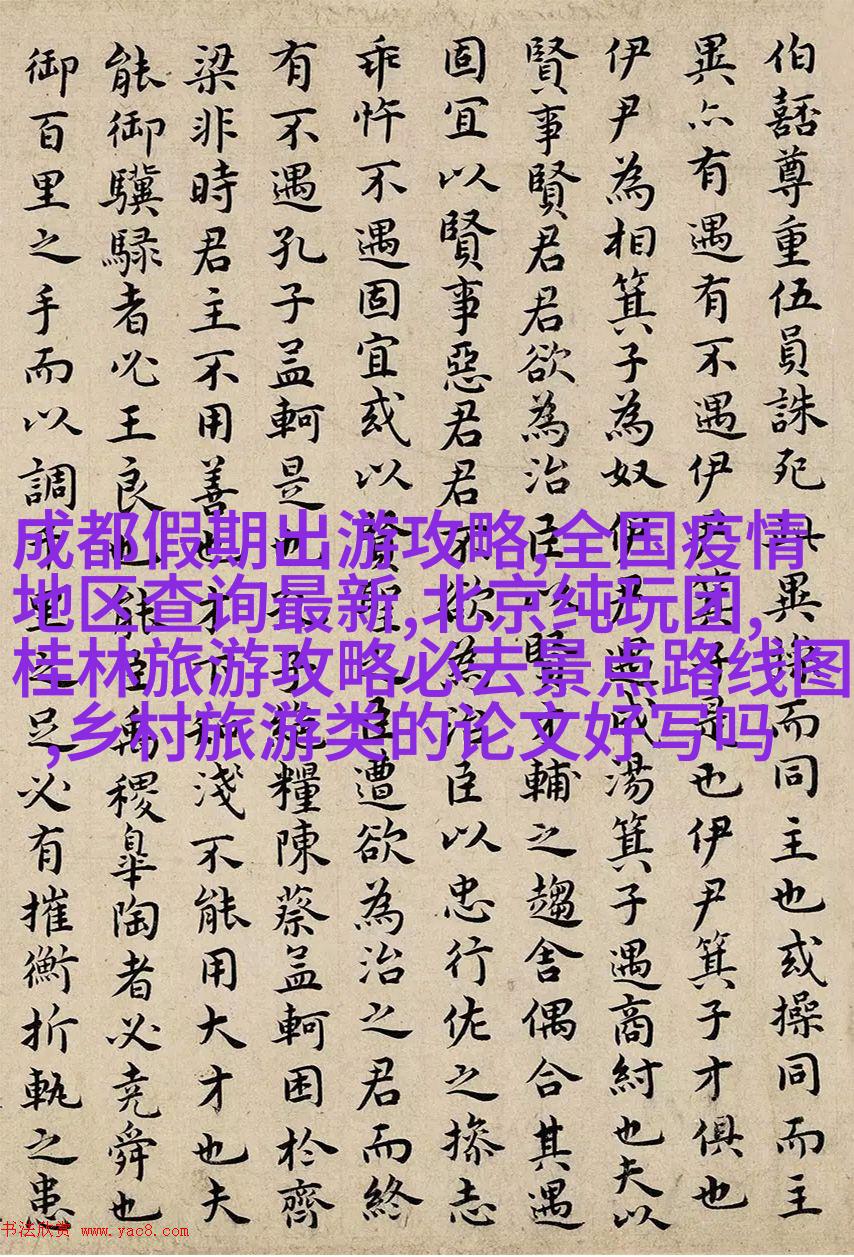 伯嚭尊重伍員誅死此異操而同主也或操同而主
異亦有遇有不遇伊尹箕子是也伊尹箕子才俱也
伊尹為相箕子為奴伊尹遇成湯箕子遇商紂也夫以
賢事賢君君欲為治臣以賢才輔之趨舍偶合其遇
固宜以賢事惡君君不欲為治臣以忠行佐之操志
乖忤不遇固宜或以賢聖之臣遭欲為治之君而終
有不遇孔子孟軻是也孔子絕糧陳蔡孟軻困於齊
梁非時君主不用善也才下知淺不能用大才也夫
能御驥騄者必王良也能臣禹稷皋陶者必堯舜也
御百里之手而以調千里之足必有摧衡折軛之患
成都假期出游攻略,全国疫情
地区查询最新,北京纯玩团,
桂林旅游攻略必去景点路线图
,乡村旅游类的论文好写吗
书法欣赏 www.yac8.com